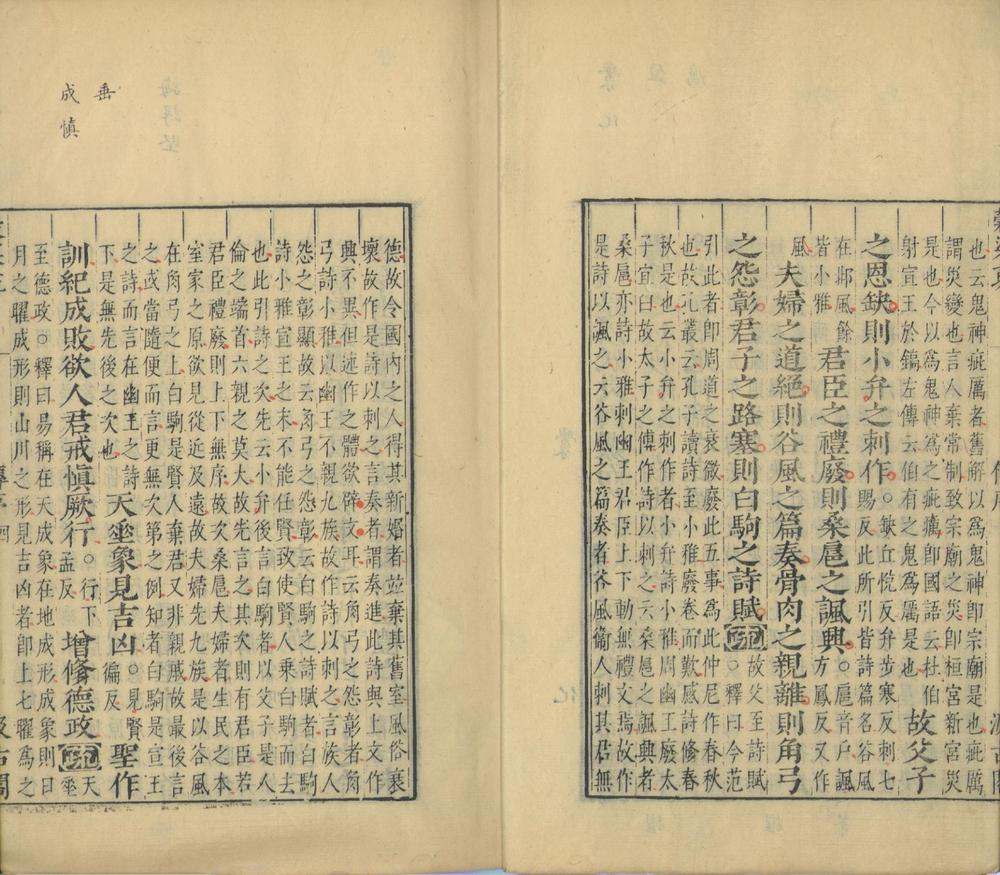 也云鬼神疵厲者舊解以爲鬼神即宗廟是也疵厲
謂災變也言人棄常制致宗廟之災即桓宮新宮災
是也今以爲鬼神爲之疵癘即國語云杜伯
射宣王於鎬左傳云伯有之鬼爲厲是也
故父子
之恩缺則小弁之刺作。
缺丘悅反弁步寒反刺七
賜反此所引皆詩篇名谷風
在邶風餘
皆小雅
君臣之禮廢則桑扈之諷興。
扈音戶諷
方鳳反又作
風
夫婦之道絕則谷風之篇奏骨肉之親離則角弓
之怨彰君子之路塞則白駒之詩賦
疏
故父至詩賦
。釋曰今范
引此者即周道之衰微廢此五事爲此仲尼作春秋
也故孔叢云孔子讀詩至小雅廢卷而歎感詩修春
秋是也云小弁之刺作者小弁詩小雅周幽王廢太
子宜曰故太子之傅作詩以刺之云桑扈之諷興者
桑扈亦詩小雅刺幽王君臣上下動無禮文焉故作
是詩以諷之云谷風之篇奏者谷風衞人刺其君無
德故令國內之人得其新婚者並棄其舊室風俗衰
壞故作是詩以刺之言奏者謂奏進此詩與上文作
興不異但述作之體欲辟文耳云角弓之怨彰者角
弓詩小雅以幽王不親九族故作詩以刺之言族人
怨之彰顯故云角弓之怨彰云白駒之詩賦者白駒
詩小雅宣王之末不能任賢致使賢人乗白駒而去
也此引詩之次先云小弁後言白駒者以父子是人
倫之端首六親之莫大故先言之其次則有君臣若
君臣禮廢則上下無序故次桑扈夫婦者生民之本
室家之原欲見從近及遠故夫婦先九族是以谷風
在角弓之上白駒是賢人棄君又非親戚故最後言
之或當隨便而言更無次第之例知者白駒是宣王
之詩而言在幽王之詩
下是無先後之次也
天埀象見吉凶。
見賢
徧反
聖作
訓紀成敗欲人君戒慎厥行。
行下
孟反
增修德政
疏
天埀
至德政。釋曰易稱在天成象在地成形成象則日
月之曜成形則山川之形見吉凶者即上七曜爲之
垂
成
慎